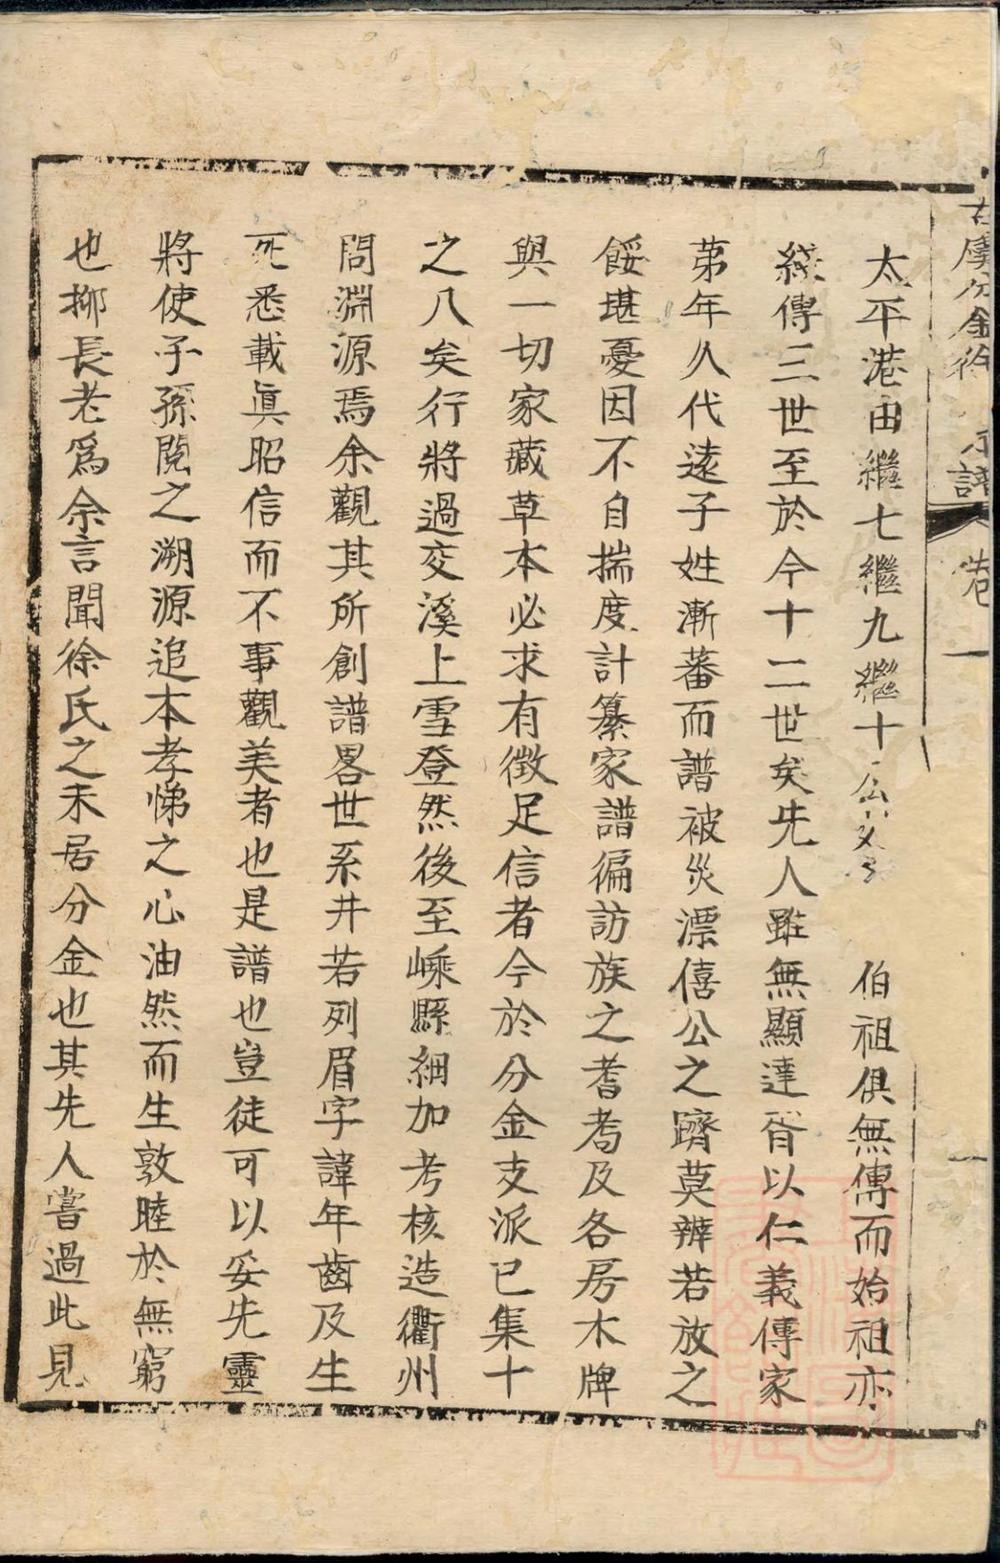 古虞分金徐氏譜 卷一 一
太平港由繼七繼九繼十公 伯祖俱無傳而始祖亦
綫傳三世至於今十二世矣先人雖無顯達胥以仁義傳家
苐年久代遠子姓漸蕃而譜被災漂僖公之躋莫辨若放之
餒堪憂因不自揣度計纂家譜徧訪族之耆耇及各房木牌
與一切家藏草本必求有徵足信者今於分金支派已集十
之八矣行將過交溪上雪登然後至嵊縣細加考核造衢州
問淵源焉余觀其所創譜畧世系井若列眉字諱年齒及生
死悉載眞昭信而不事觀美者也是譜也豈徒可以妥先靈
將使子孫閱之溯源追本孝悌之心油然而生敦睦於無窮
也抑長老爲余言聞徐氏之未居分金也其先人嘗過此見